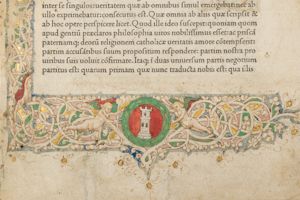 inter se singulos ueritatem quæ ab omnibus simul emergitanec ab
ullo exprimebatur: consecutus est. Quæ omnia ab aliis quæ scripsit &
ab hoc opere perspicere licet. Quod illæ ideo suscepit: quoniam quom
apud gentiũ præclaros philosophia uiros nobilissimus esset: ac priscã
paternamq; deorũ religionem catholicæ ueritatis amore cõtempsisset:
partim accusãtibus suum propositum respondere: partim nostra pro
uiribus suis uoluit confirmare. Itaq; ĩ duas uniuersum partis negotium
partitus est: quarum primam quæ nunc traducta nobis est: qua illis